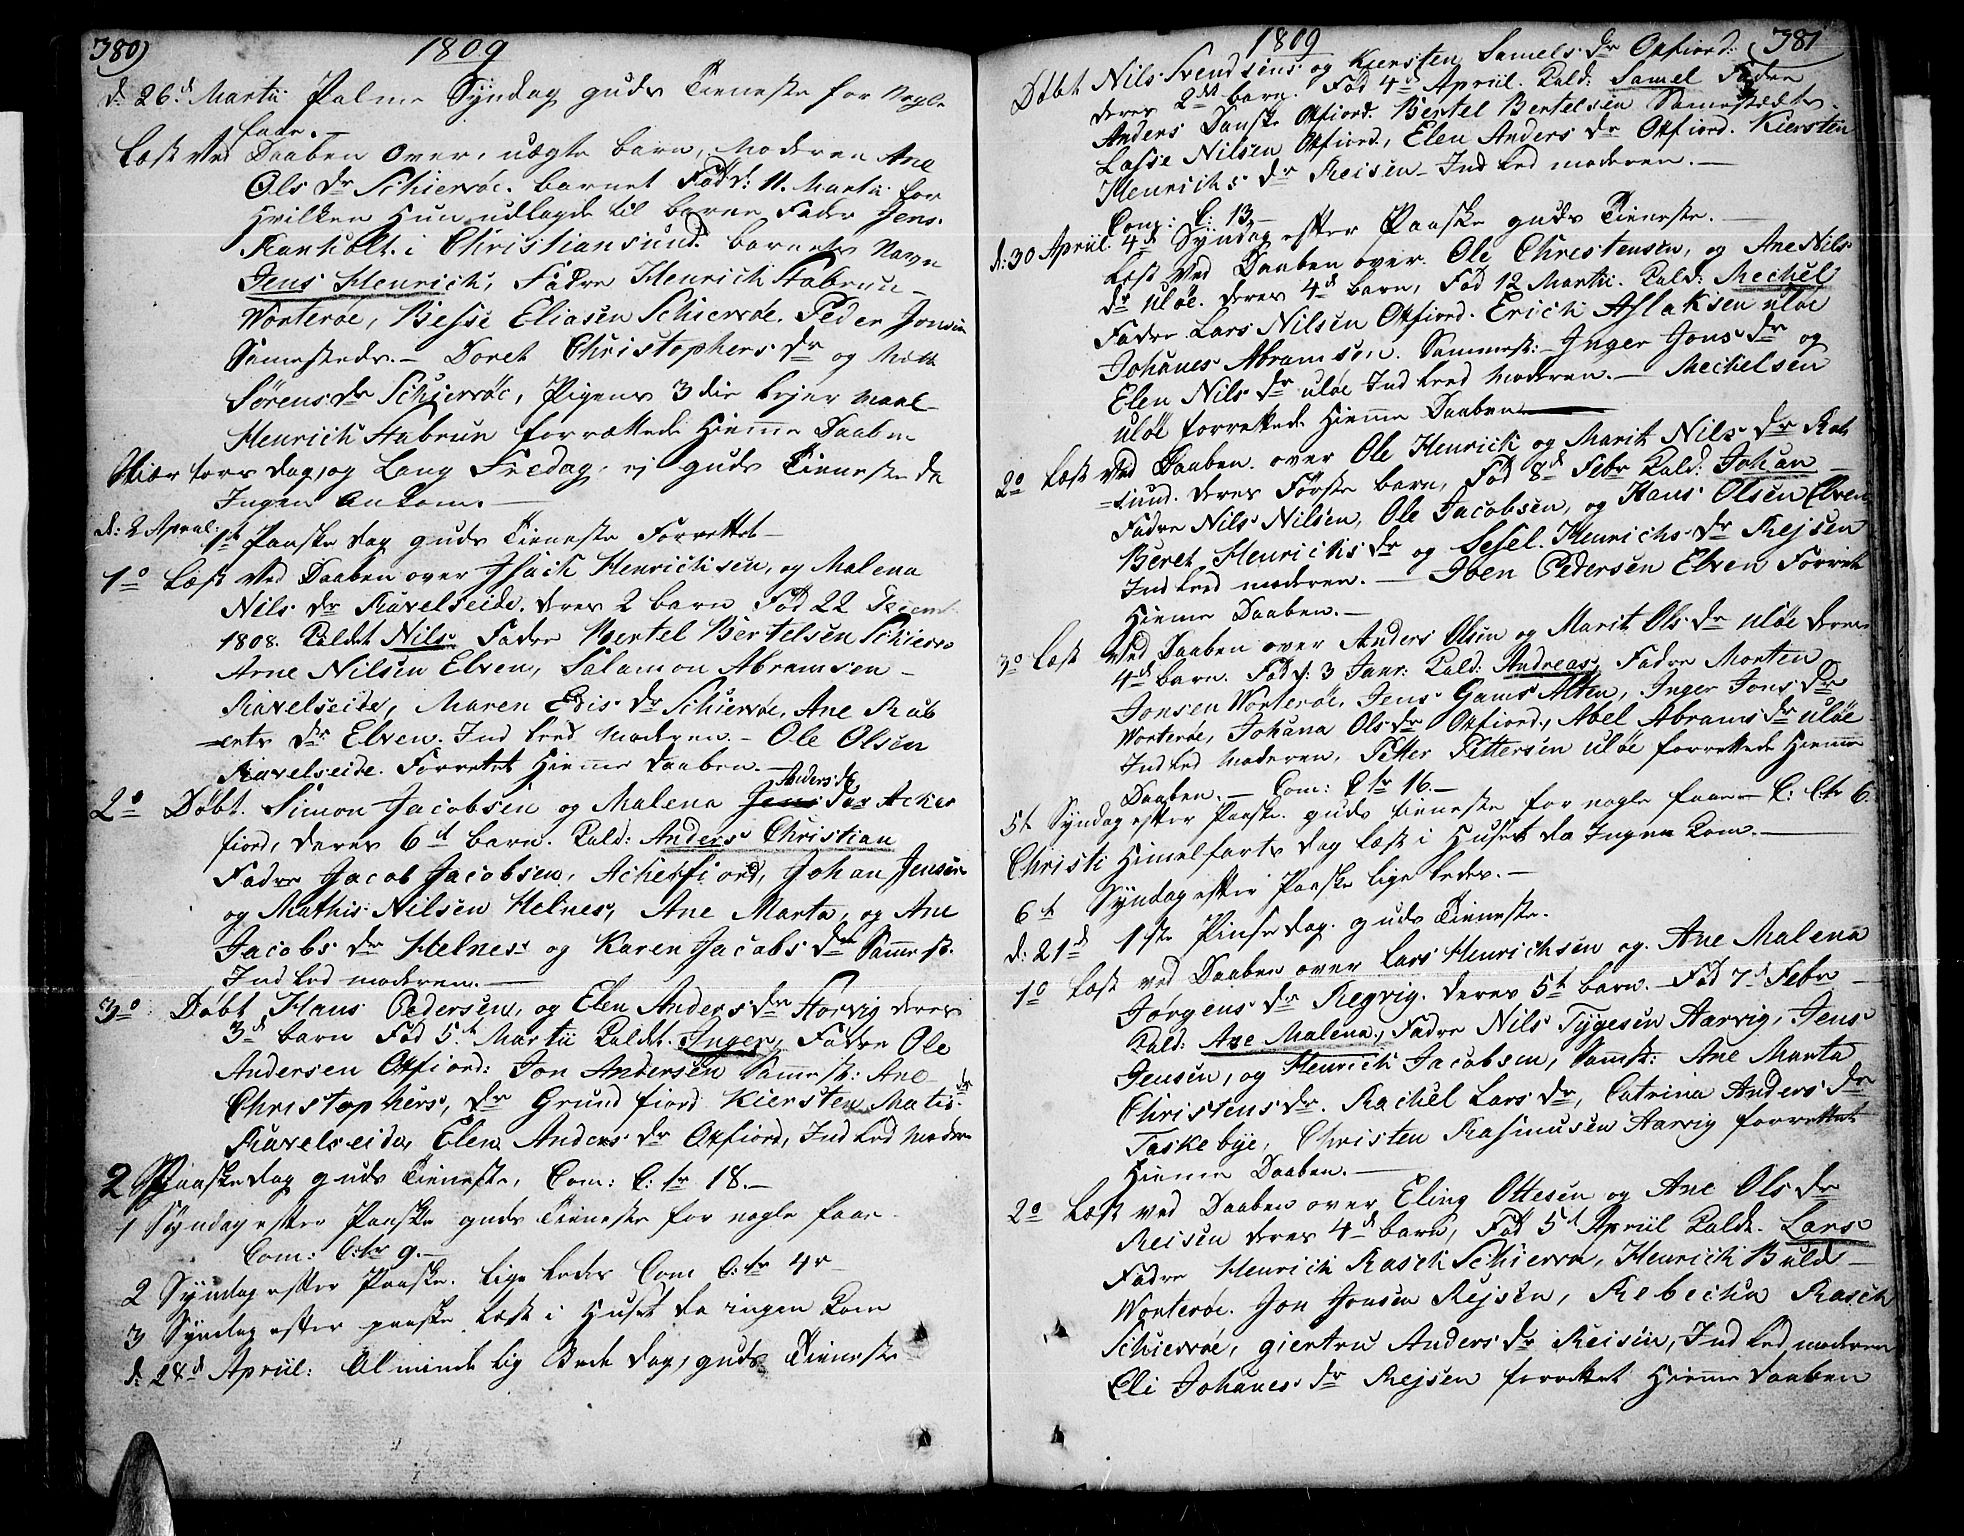 380)
1809
d: 26d Martii Palme Syndag guds Tieneste for Nogle
faae.
Læst ved Daaben over, uægte barn, Moderen Ane
Ols dr Schiervöe. barnet Fød d: 11. Martii for
hvilken hun udlagde til barne Fader Jens
Ranholt i Christiansund. barnets Navn
Jens Henrich, Fadre Henrich Stabrun
Worteröe, Besse Eliasen Schierröe. Peder Jonsen
Sammesteds.- Doret Christophers dr og Mette
Sørens dr Schierröe, Pigens 3die lejer maal
Henrich Stabrun forrættede Hiemme Daaben
Skiær tors dag, og Lang Fredag, ej guds Tieneste da
Ingen ankom.-
d: 2 Apriil: 1st Paaske dag guds Tieneste Forrettet
1o Læst ved Daaben over Isach Henrichsen, og Malena
Nils dr Ravelseide. deres 2 barn Fød 22 Decemb
1808. Kaldet Nils. Fadre Bertel Bertelsen Schierrö
Arne Nilsen Elven, Salamon Abramsen
Ravelseide, Maren Edis dr Schierröe, Ane Rub
=erts dr Elven. Ind led Moderen.- Ole Olsen
Ravelseide. Forrettet Hiemme daaben.
Anders dr
2o Døbt. Simon Jacobsen og Malena Jens dr Acker
fiord, deres 6d barn. Kald: Anders Christian
Fadre Jacob Jacobsen, Ackerfiord, Johan Jensen
og Mathis Nilsen Helnes, Ane Marta, og Ane
Jacobs dr Helnes og Karen Jacobs dr Sammest:
Ind led moderen.
3o: Døbt Hans Pedersen, og Elen Anders dr Storvig deres
3d barn Fød 5t Martii Kaldet. Inger, Fadre Ole
Andersen Oxfiord: Jon Andersen Sammest: Ane
Christophers, dr Grundfiord Kiersten Matis dr
Ravelseide, Elen Anders dr Oxfiord, Ind led Moderen
2 Paaske dag guds Tieneste, Com: C: tr 18.-
1 Syndag efter Paaske guds Tieneste for nogle faae
Com: C: tr 9.-
2 Syndag efter Paaske. lige ledes Com C: tr 4r
3 Syndag efter paaske læst i Huset da ingen kom
d: 28d Apriil: Almindelig Bede dag, guds Tieneste
1809
381
Døbt Nils Svendsens og Kiersten Samels dr Oxfiord:
deres 2det barn. Fød 4d Apriil. Kald: Samel Fadre
Anders Danske Oxfiord. Bertel Bertelsen Sammesteds
Lasse Nilsen Oxfiord, Elen Anders dr Oxfiord. Kiersten
Henrichs dr Reisen. Ind led moderen.-
Com: C: 13.-
d: 30 Apriil. 4d Syndag efter Paaske guds Tieneste.-
Læst ved Daaben over. Ole Christensen, og Ane Nils
dr Ulöe. deres 4d barn, Fød 12 Martii. Kald: Mechel
Fadre Lars Nilsen Oxfiord. Erich Aslaksen Ulöe
Johanes Abramsen. Sammest:- Inger Jons dr og
Elen Nils dr Ulöe Ind led Moderen.- Mechelsen
Ulöe forrettede Hiemme Daaben
2o Læst ved Daaben. over Ole Henrich og Marit Nils dr Rot
=sund. deres Første barn, Fød 8d Febr Kald: Johan
Fadre Nils Nilsen, Ole Jacobsen, og Hans Olsen Elven
Beret Henrichs dr og Sesel Henrichs dr Rejsen
Ind led moderen.- Iven Pedersen Elven Forret
Hieme Daaben.-
3o Læst ved Daaben over Anders Olsen og Marit Ols dr Ulöe deres
4d barn. Fød d: 3 Janr: Kald: Andreas, Fadre Morten
Jonsen Worteröe, Jens Gams Alten, Inger Jons dr
Worteröe, Johana Ols dr Oxfiord, Abel Abrams dr Ulöe
Ind led Moderen, Petter Pettersen Ulöe forrettede Hieme
Daaben.- Com: C tr 16.-
5t Syndag efter Paaske. guds tieneste for nogle faae- C: C tr 6.
Christi Himelfarts dag læst i Huset da Ingen kom.-
6t Syndag efter Paaske lige ledes.-
d: 21d 1ste Pinse dag. guds Tieneste.
1o Læst ved Daaben over Lars Henrichsen og Ane Malena
Jørgens dr Regvig. deres 5t barn. Fød 7d Febr
Kald: Ane Malena, Fadre Nils Tygesen Aarvig, Jens
Jensen, og Henrich Jacobsen, Samst: Ane Marta
Christens dr. Rachel Lars dr, Catrina Anders dr
Taskebye, Christen Rasmusen Aarvig forrettet
Hieme Daaben.-
2o Læst ved Daaben over Eling Ottesen og Ane Ols dr
Reisen deres 4d barn, Fød 5d Apriil Kaldt. Lars
Fadre Henrich Rasch Schierröe, Henrich Buld
Worteröe. Jon Jonsen Rejsen, Rebecha Rasch
Schierröe, giertru Anders dr Reisen, Ind led moderen
Eli Johanes dr Rejsen forrettet Hiemme daaben